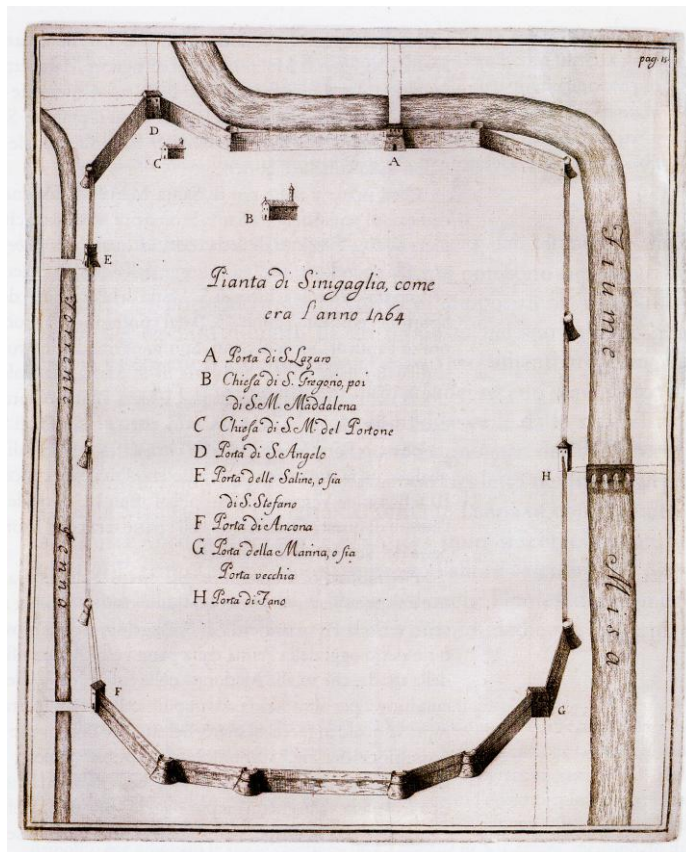 pag
D
C
A
B
E
Pianta di Sinigaglia, come
era l'anno 1264
A Porta di S. Lazaro
B Chieſa di S. Gregorio, poi
di S. M. Maddalena
C Chieſa di S. M. del Portone
D Porta di S. Angelo
E Porta delle Saline, o ſia
di S. Stefano
F Porta di Ancona
G Porta della Marina, o ſia
Porta vecchia
H Porta di Fano
H
F
G
Torrente Penna
Fiume Misa